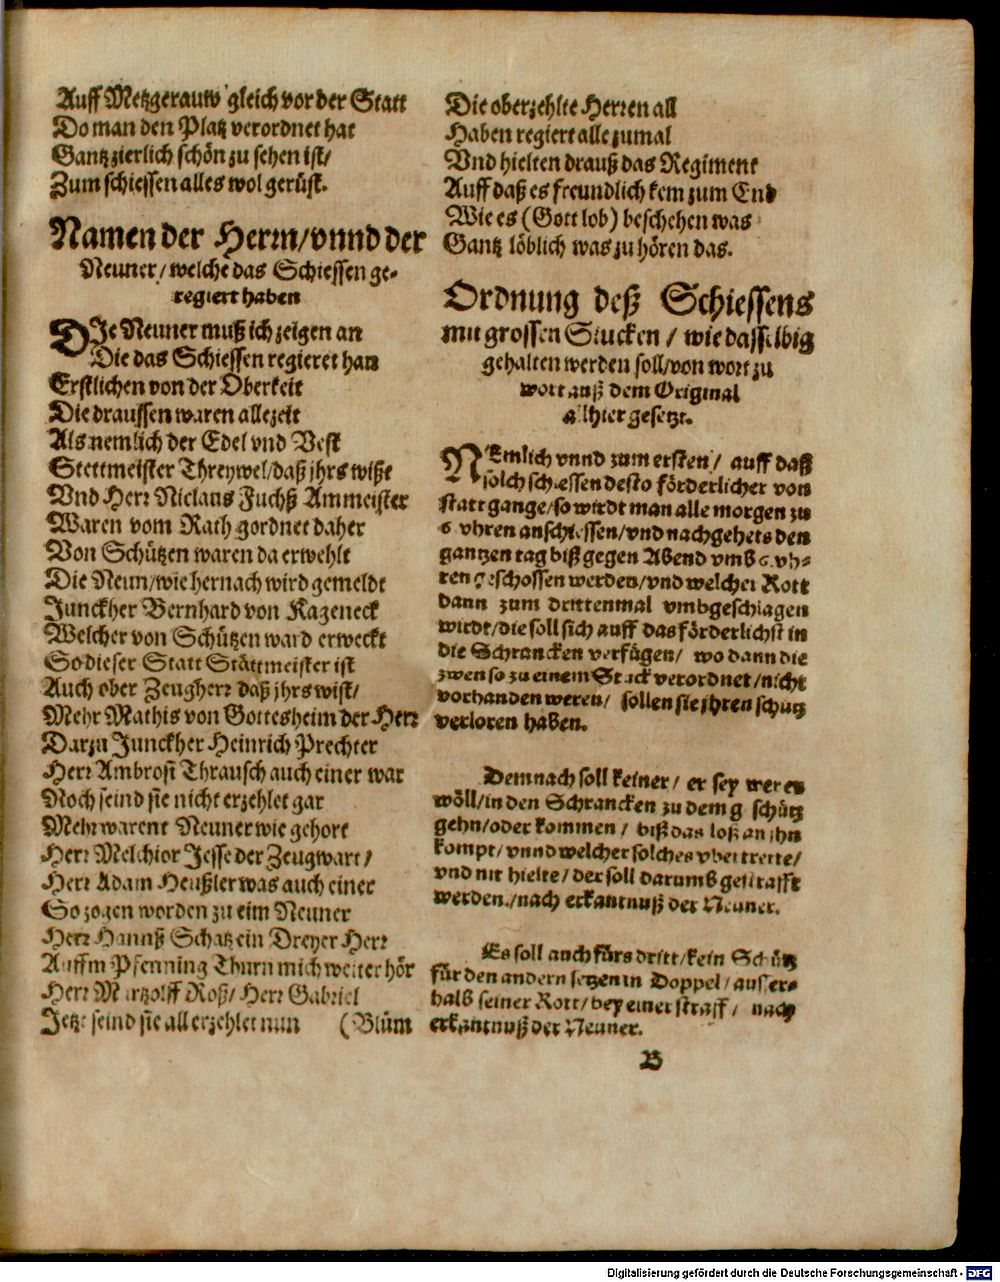 Auff Metzgerauw gleich vor der Statt
Do man den Platz verordnet hat
Gantz zierlich schön zu sehen ist/
Zum schiessen alles wol gerüst.
Namen der Herrn/vnnd der
Neuner/welche das Schiessen ge-
regiert haben
DIe Neuner muß ich zeigen an
Die das Schiessen regieret han
Erstlichen von der Oberkeit
Die draussen waren allezeit
Als nemlich der Edel vnd Vest
Stettmeister Threywel/daß jhrs wißt
Vnd Herr Niclaus Fuchß Ammeister
Waren vom Rath gordnet daher
Von Schützen waren da erwehlt
Die Neun/wie hernach wird gemeldt
Junckher Bernhard von Kageneck
Welcher von Schützen ward erweckt
So dieser Statt Stättmeister ist
Auch ober Zeugherr daß jhrs wist/
Mehr Mathis von Gottesheim der Herr
Darzu Junckher Heinrich Prechter
Herr Ambrosi Thrausch auch einer war
Noch seind sie nicht erzehlet gar
Mehr warent Neuner wie gehort
Herr Melchior Jesse der Zeugwart/
Herr Adam Heußler was auch einer
So zogen worden zu eim Neuner
Herr Hannß Schatz ein Dreyer Herr
Auffm Pfenning Thurn mich weiter hör
Herr Martzolff Roß/ Herr Gabriel
Jetzt seind sie all erzehlet nun (Blüm
Die oberzehlte Herren all
Haben regiert alle zumal
Vnd hielten drauß das Regiment
Auff daß es freundlich kem zum End
Wie es (Gott lob) beschehen was
Gantz löblich was zu hören das.
Ordnung deß Schiessens
mit grossen Stucken / wie dasselbig
gehalten werden soll/von wort zu
wort auß dem Original
allhier gesetzt.
NEmlich vnnd zum ersten/ auff daß
solch schiessen desto förderlicher von
statt gange/so wirdt man alle morgen zu
6 vhren anschiessen/vnd nachgehets den
gantzen tag biß gegen Abend vmb 6. vh-
ren geschossen werden/vnd welcher Rott
dann zum drittenmal vmbgeschlagen
wirdt/die soll sich auff das förderlichst in
die Schrancken verfügen/ wo dann die
zwen so zu einem Stuck verordnet/nicht
vorhanden weren/ sollen sie jhren schutz
verloren haben.
Demnach soll keiner/ er sey wer er
wöll/in den Schrancken zu dem gschütz
gehn/oder kommen/ biß das loß an jhn
kompt/vnnd welcher solches vbertrette/
vnd nit hielte/der soll darumb gestrafft
werden./nach erkantnuß der Neuner.
Es soll auch fürs dritt/kein Schütz
für den andern setzen in Doppel/ausser-
halb seiner Rott/bey einer straff/ nach
erkantnuß der Neuner.
B
Digitalisierung gefördert durch die Deutsche Forschungsgemeinschaft - DFG